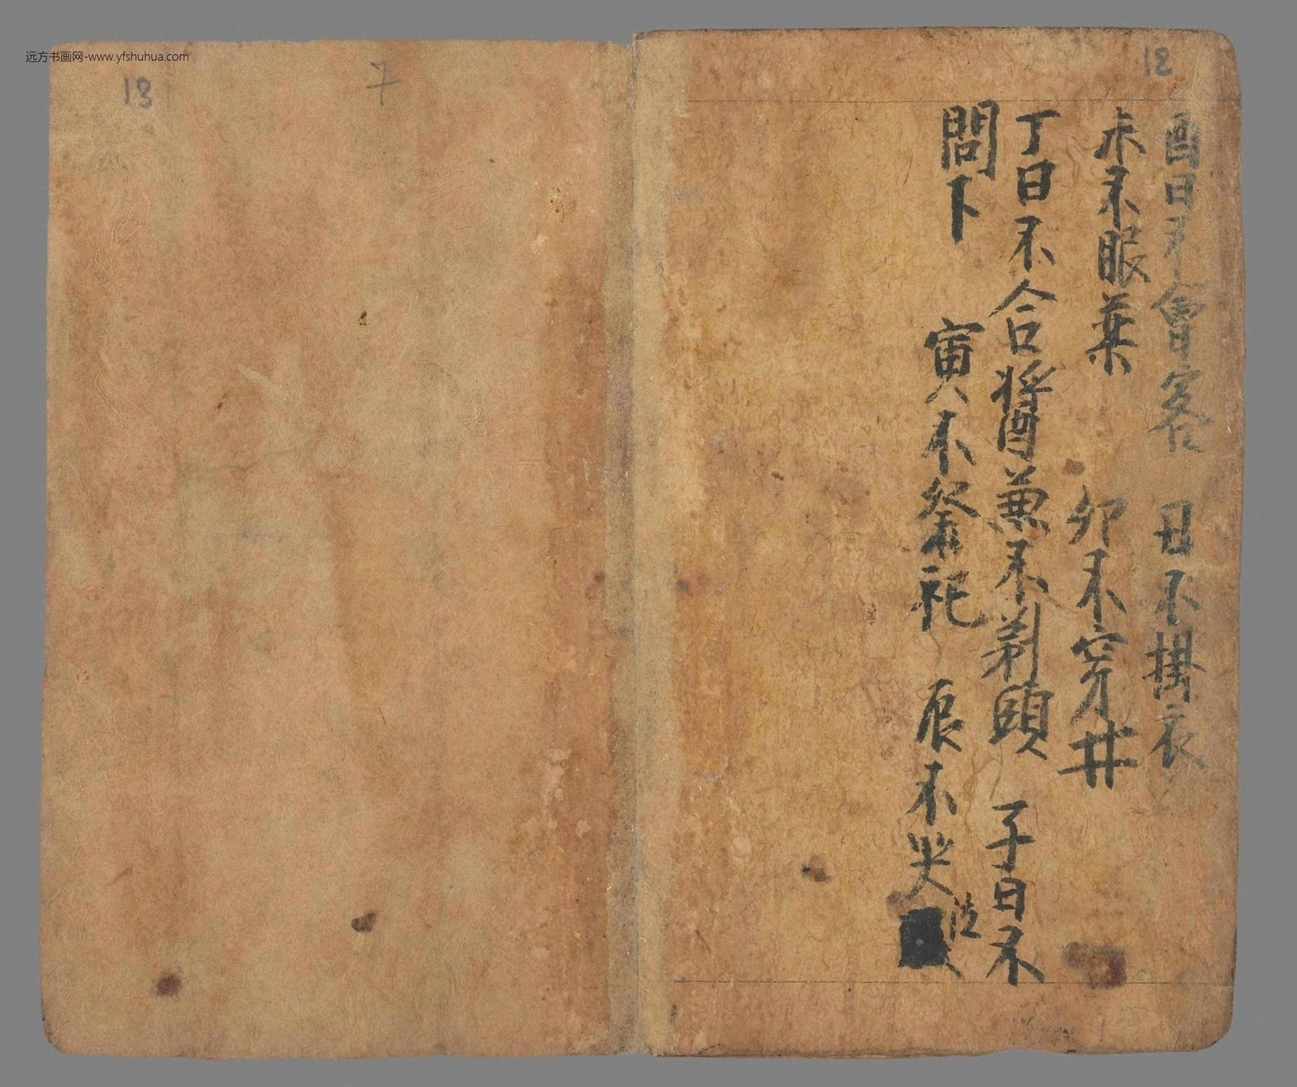 远方书画网-www.yfshuhua.com
13
7
12
酉日不會客 丑不掛衣
未不服藥 卯不穿井
丁日不合醬兼不剃頭 子日不
問卜 寅不祭祀 辰不哭泣